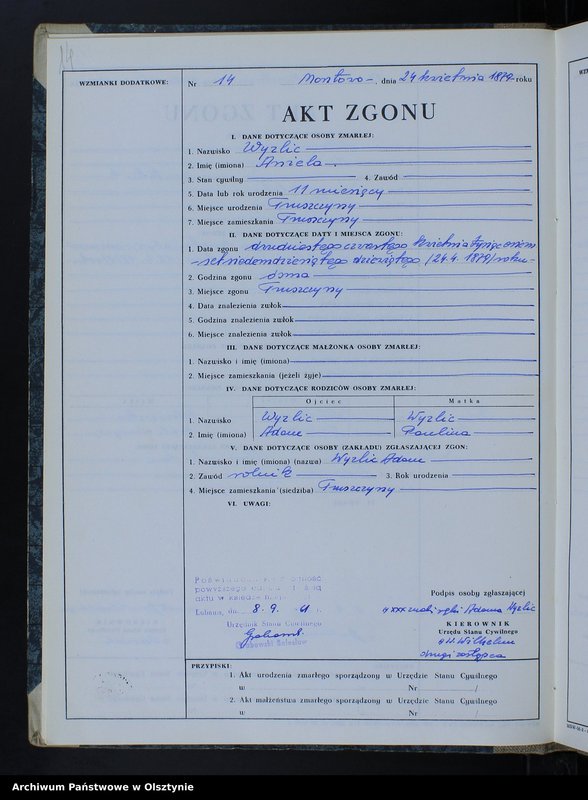 14
WZMIANKI DODATKOWE:
Nr 14 Montowo, dnia 24 kwietnia 1879 roku
AKT ZGONU
I. DANE DOTYCZĄCE OSOBY ZMARŁEJ:
1. Nazwisko Wyzlic
2. Imię (imiona) Aniela
3. Stan cywilny 4. Zawód
5. Data lub rok urodzenia 11 miesięcy
6. Miejsce urodzenia Truszczyny
7. Miejsce zamieszkania Truszczyny
II. DANE DOTYCZĄCE DATY I MIEJSCA ZGONU:
1. Data zgonu dwudziestego czwartego kwietnia tysiąc osiem-
set siedemdziesiątego dziewiątego /24.4. 1879/ roku
2. Godzina zgonu ósma
3. Miejsce zgonu Truszczyny
4. Data znalezienia zwłok
5. Godzina znalezienia zwłok
6. Miejsce znalezienia zwłok
III. DANE DOTYCZĄCE MAŁŻONKA OSOBY ZMARŁEJ:
1. Nazwisko i imię (imiona)
2. Miejsce zamieszkania (jeżeli żyje)
IV. DANE DOTYCZĄCE RODZICÓW OSOBY ZMARŁEJ:
Ojciec Matka
1. Nazwisko Wyzlic Wyzlic
2. Imię (imiona) Adam Paulina
V. DANE DOTYCZĄCE OSOBY (ZAKŁADU) ZGŁASZAJĄCEJ ZGON:
1. Nazwisko i imię (imiona) (nazwa) Wyzlic Adam
2. Zawód rolnik 3. Rok urodzenia
4. Miejsce zamieszkania (siedziba) Truszczyny
VI. UWAGI:
powyższego
aktu w księdze
Lubawa, dn. 8. 9.
Urzędnik Stanu Cywilnego
Podpis osoby zgłaszającej
xxx znaki ręki Adama Wyzlic
KIEROWNIK
Urzędu Stanu Cywilnego
Wilhelm
drugi zastępca
PRZYPISKI:
1. Akt urodzenia zmarłego sporządzony w Urzędzie Stanu Cywilnego
w Nr /
2. Akt małżeństwa zmarłego sporządzony w Urzędzie Stanu Cywilnego
w Nr /
Archiwum Państwowe w Olsztynie